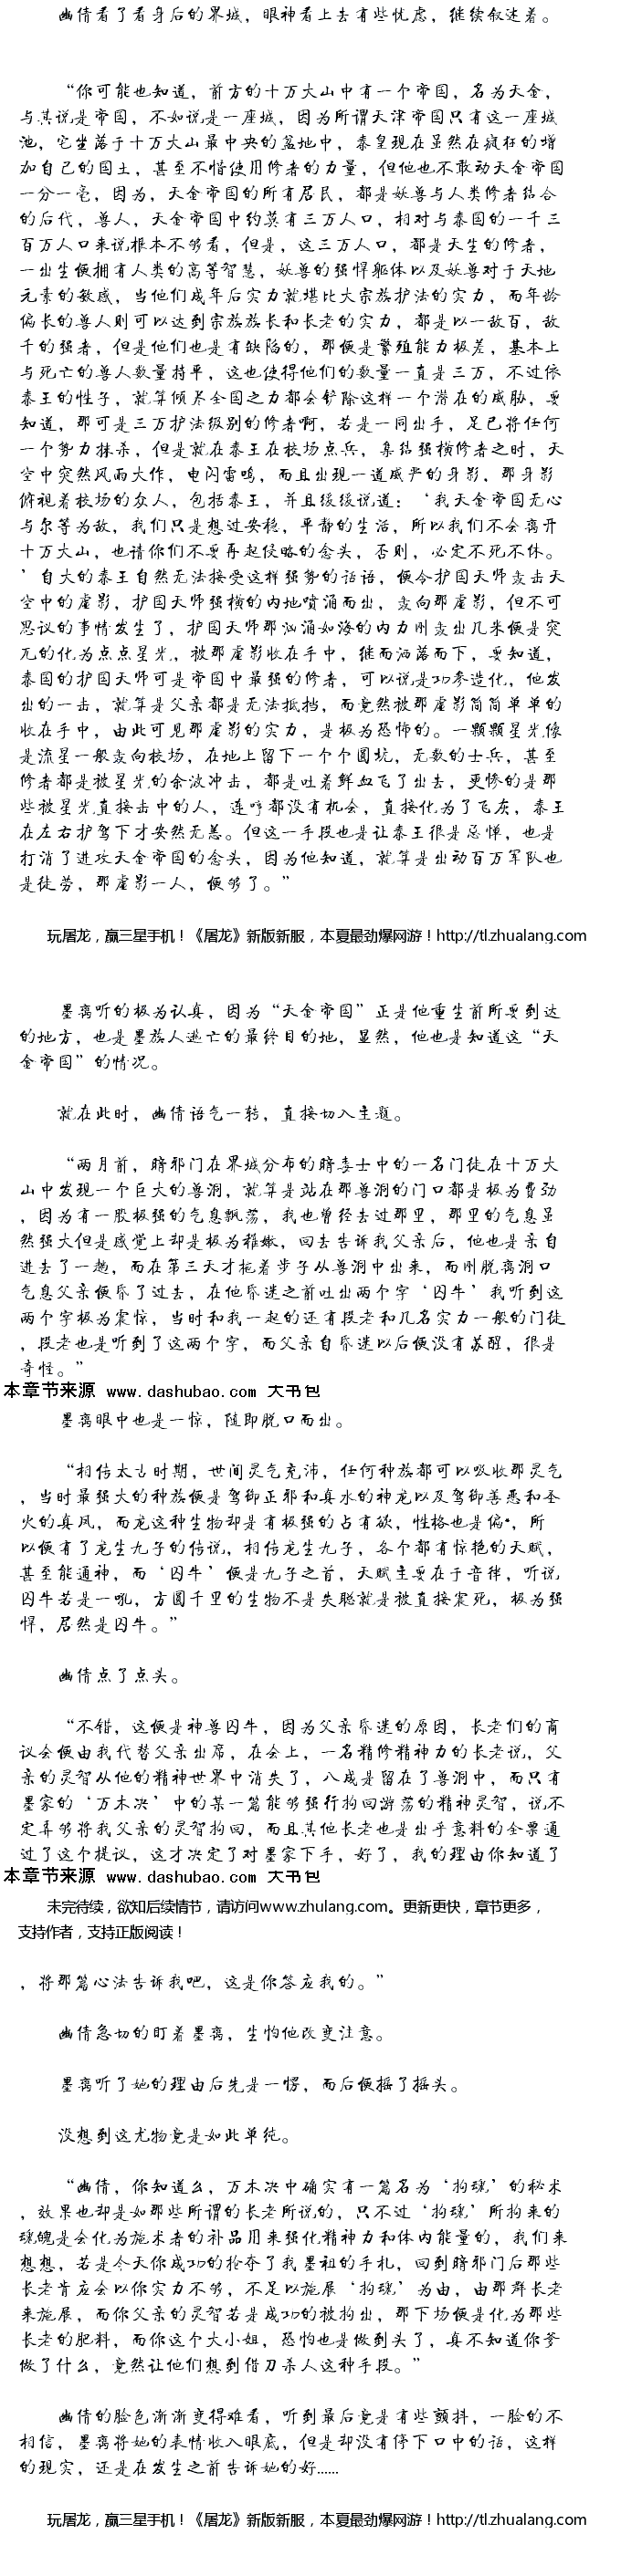 幽倩看了看身后的界城，眼神看上去有些忧虑，继续叙述着。
“你可能也知道，前方的十万大山中有一个帝国，名为天金，
与其说是帝国，不如说是一座城，因为所谓天津帝国只有这一座城
池，它坐落于十万大山最中央的盆地中，秦皇现在虽然在疯狂的增
加自己的国土，甚至不惜使用修者的力量，但他也不敢动天金帝国
一分一毫，因为，天金帝国的所有居民，都是妖兽与人类修者结合
的后代，兽人，天金帝国中约莫有三万人口，相对与秦国的一千三
百万人口来说根本不够看，但是，这三万人口，都是天生的修者，
一出生便拥有人类的高等智慧，妖兽的强悍躯体以及妖兽对于天地
元素的敏感，当他们成年后实力就堪比大宗族护法的实力，而年龄
偏长的兽人则可以达到宗族族长和长老的实力，都是以一敌百，敌
千的强者，但是他们也是有缺陷的，那便是繁殖能力极差，基本上
与死亡的兽人数量持平，这也使得他们的数量一直是三万，不过依
秦王的性子，就算倾尽全国之力都会铲除这样一个潜在的威胁，要
知道，那可是三万护法级别的修者啊，若是一同出手，足已将任何
一个势力抹杀，但是就在秦王在校场点兵，集结强横修者之时，天
空中突然风雨大作，电闪雷鸣，而且出现一道威严的身影，那身影
俯视着校场的众人，包括秦王，并且缓缓说道：‘我天金帝国无心
与尔等为敌，我们只是想过安稳，平静的生活，所以我们不会离开
十万大山，也请你们不要再起侵略的念头，否则，必定不死不休。
’自大的秦王自然无法接受这样强势的话语，便令护国天师轰击天
空中的虚影，护国天师强横的内地喷涌而出，轰向那虚影，但不可
思议的事情发生了，护国天师那汹涌如海的内力刚轰出几米便是突
兀的化为点点星光，被那虚影收在手中，继而洒落而下，要知道，
秦国的护国天师可是帝国中最强的修者，可以说是功参造化，他发
出的一击，就算是父亲都是无法抵挡，而竟然被那虚影简简单单的
收在手中，由此可见那虚影的实力，是极为恐怖的。一颗颗星光像
是流星一般轰向校场，在地上留下一个个圆坑，无数的士兵，甚至
修者都是被星光的余波冲击，都是吐着鲜血飞了出去，更惨的是那
些被星光直接击中的人，连呼都没有机会，直接化为了飞灰，秦王
在左右护驾下才安然无恙。但这一手段也是让秦王很是忌惮，也是
打消了进攻天金帝国的念头，因为他知道，就算是出动百万军队也
是徒劳，那虚影一人，便够了。”
玩屠龙，赢三星手机！《屠龙》新版新服，本夏最劲爆网游！http://tl.zhualang.com
墨离听的极为认真，因为“天金帝国”正是他重生前所要到达
的地方，也是墨族人逃亡的最终目的地，显然，他也是知道这“天
金帝国”的情况。
就在此时，幽倩语气一转，直接切入主题。
“两月前，暗邪门在界城分布的暗委士中的一名门徒在十万大
山中发现一个巨大的兽洞，就算是站在那兽洞的门口都是极为费劲
，因为有一股极强的气息飘荡，我也曾经去过那里，那里的气息虽
然强大但是感觉上却是极为稚嫩，回去告诉我父亲后，他也是亲自
进去了一趟，而在第三天才拖着步子从兽洞中出来，而刚脱离洞口
气息父亲便昏了过去，在他昏迷之前吐出两个字‘囚牛’我听到这
两个字极为震惊，当时和我一起的还有段老和几名实力一般的门徒
，段老也是听到了这两个字，而父亲自昏迷以后便没有苏醒，很是
奇怪。”
本章节来源 www.dashubao.com 大书包
墨离眼中也是一惊，随即脱口而出。
“相传太古时期，世间灵气充沛，任何种族都可以吸收那灵气
，当时最强大的种族便是驾御正邪和真水的神龙以及驾御善恶和圣
火的真凤，而龙这种生物却是有极强的占有欲，性格也是偏*，所
以便有了龙生九子的传说，相传龙生九子，各个都有惊艳的天赋，
甚至能通神，而‘囚牛’便是九子之首，天赋主要在于音律，听说
囚牛若是一吼，方圆千里的生物不是失聪就是被直接震死，极为强
悍，居然是囚牛。”
幽倩点了点头。
“不错，这便是神兽囚牛，因为父亲昏迷的原因，长老们的商
议会便由我代替父亲出席，在会上，一名精修精神力的长老说，父
亲的灵智从他的精神世界中消失了，八成是留在了兽洞中，而只有
墨家的‘万木决’中的某一篇能够强行拘回游荡的精神灵智，说不
定弄够将我父亲的灵智拘回，而且其他长老也是出乎意料的全票通
过了这个提议，这才决定了对墨家下手，好了，我的理由你知道了
本章节来源 www.dashubao.com 大书包
未完待续，欲知后续情节，请访问www.zhulang.com。更新更快，章节更多，
支持作者，支持正版阅读！
，将那篇心法告诉我吧，这是你答应我的。”
幽倩急切的盯着墨离，生怕他改变注意。
墨离听了她的理由后先是一愣，而后便摇了摇头。
没想到这尤物竟是如此单纯。
“幽倩，你知道么，万木决中确实有一篇名为‘拘魂’的秘术
，效果也却是如那些所谓的长老所说的，只不过‘拘魂’所拘来的
魂魄是会化为施术者的补品用来强化精神力和体内能量的，我们来
想想，若是今天你成功的抢夺了我墨祖的手札，回到暗邪门后那些
长老肯应会以你实力不够，不足以施展‘拘魂’为由，由那群长老
来施展，而你父亲的灵智若是成功的被拘出，那下场便是化为那些
长老的肥料，而你这个大小姐，恐怕也是做到头了，真不知道你爹
做了什么，竟然让他们想到借刀杀人这种手段。”
幽倩的脸色渐渐变得难看，听到最后竟是有些颤抖，一脸的不
相信，墨离将她的表情收入眼底，但是却没有停下口中的话，这样
的现实，还是在发生之前告诉她的好……
玩屠龙，赢三星手机！《屠龙》新版新服，本夏最劲爆网游！http://tl.zhualang.com